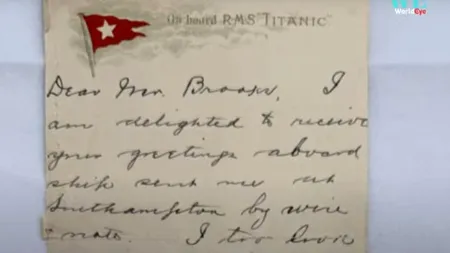 WorldEye
On board R.M.S "TITANIC"
Dear Mr. I
am delighted to receive
your greetings aboard
ship sent me at
Southampton by wire
& note. I too